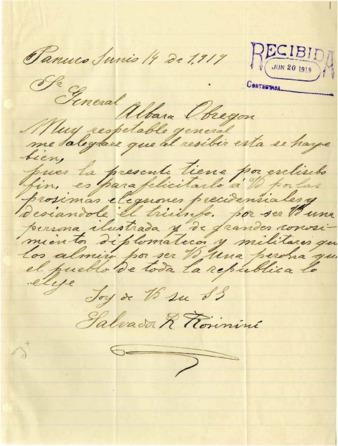 Panuco Junio 19 de 1919
RECIBIDA
JUN 20 1919
CONTESTADA
Sr
General
Albara Obregon
Muy respetable general
me halegrare que al resibir esta se haye
bien,
pues la presente tiene por esclisibo
fin, es para filicitarlo á V por las
prosimas eleguones precidenciales y
desiandole el triunfo. por ser V una
persona ilustrada y de grandes conosi-
mientos diplomaticos y militares que
los almiro por ser V una persona que
el pueblo de toda la republica lo
elije
Soy de V su SS
Salvador R